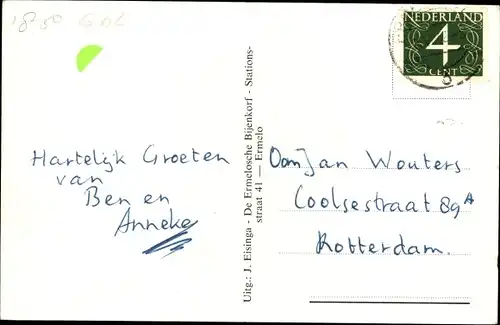 NEDERLAND
4
CENT
Hartelijk Groeten
van
Ben en
Anneke
Uitg.: J. Eisinga - De Ermelosche Bijenkorf - Stations-
straat 41 — Ermelo
Oom Jan Wouters
Coolsestraat 89A
Rotterdam.